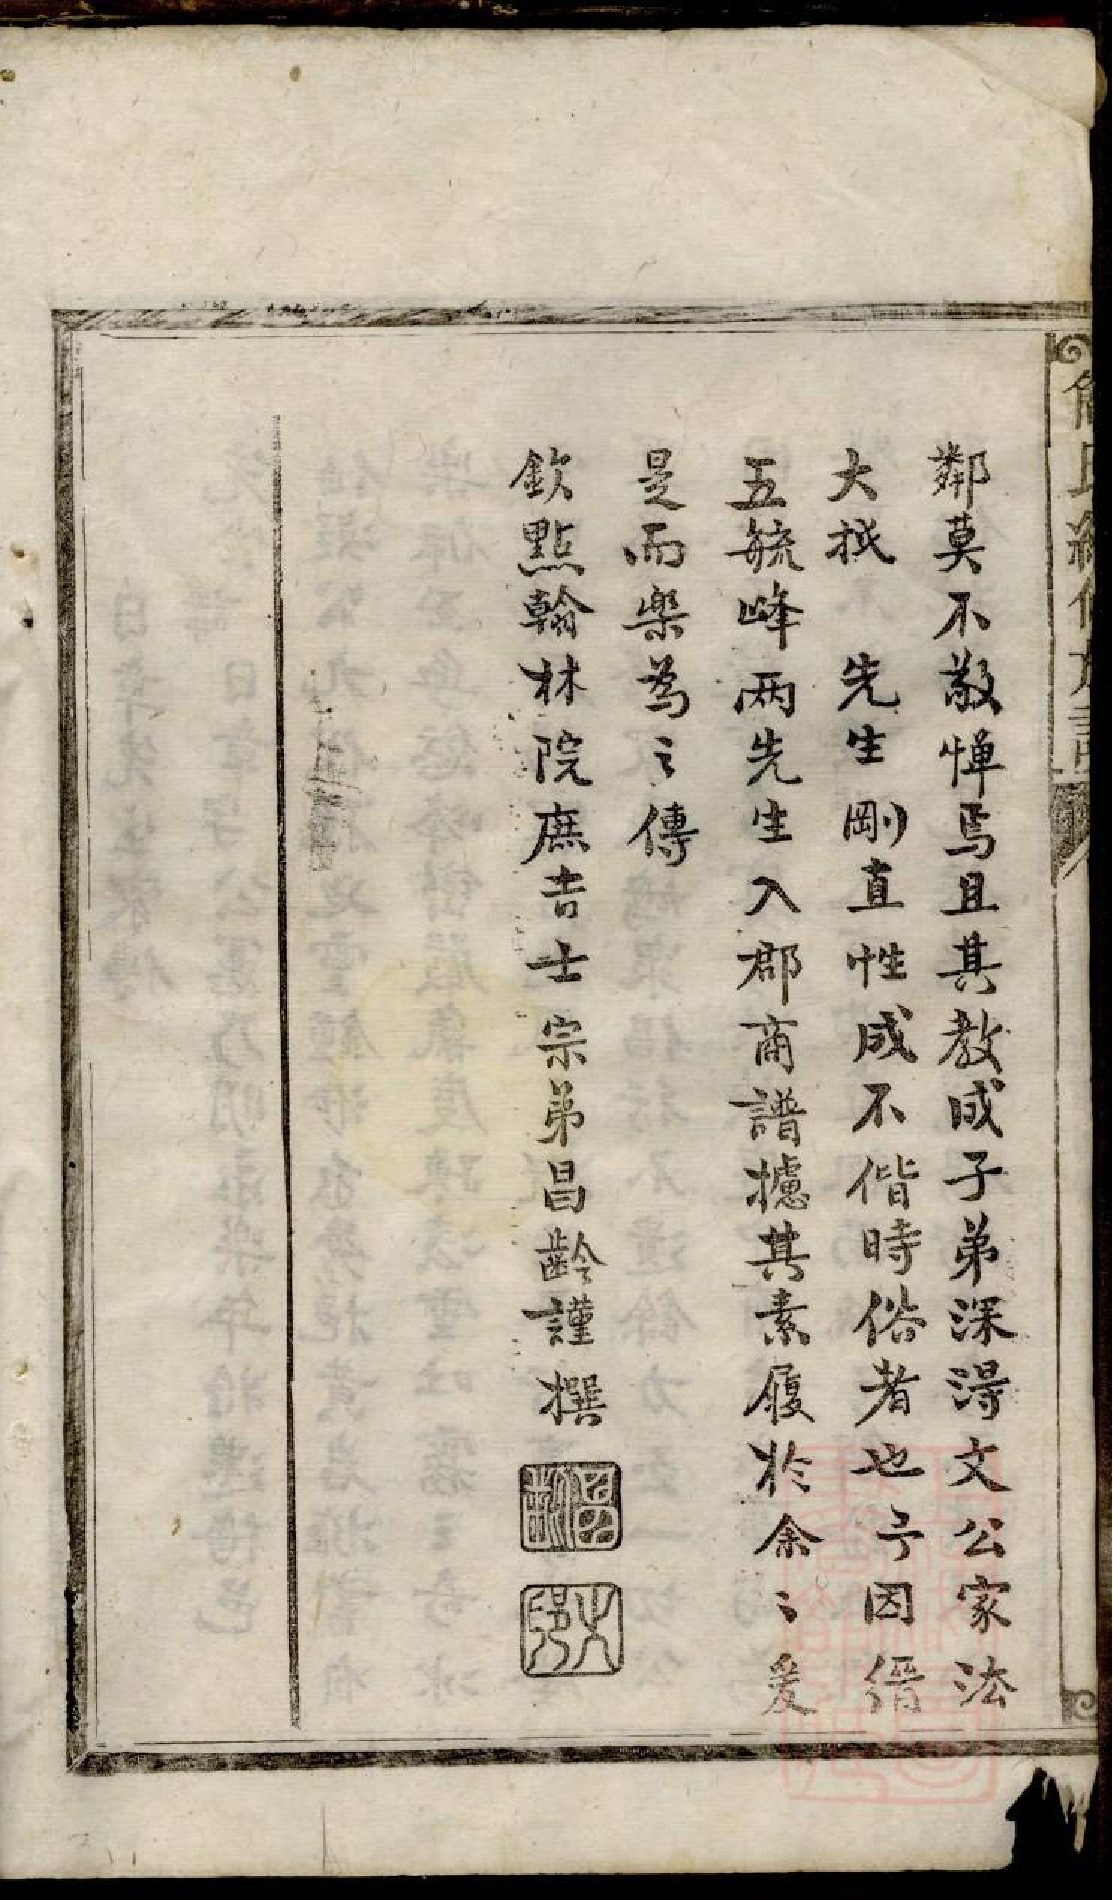 氏續修族譜
鄰莫不敬憚焉且其教成子弟深淂文公家法
大抵　先生剛直性成不偕時俗者也予因
五毓峰两先生入郡商譜攄其素履於余〻爰
是而樂為之傳
欽點翰林院庶吉士宗弟昌齡謹撰